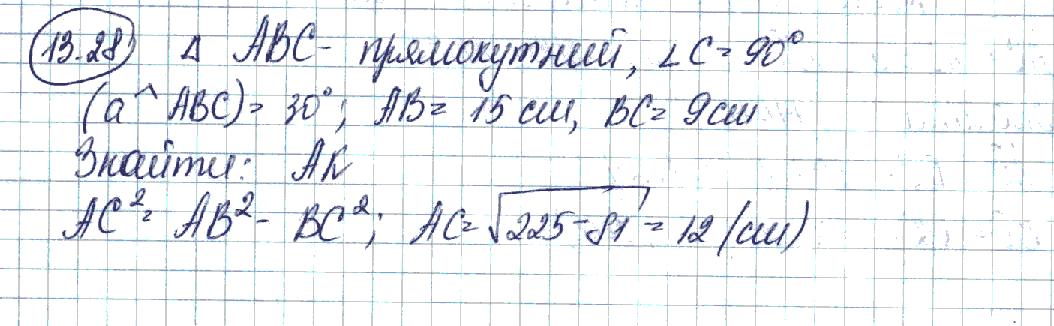 13.28) Δ ABC - прямокутний, ∠C = 90°
(a ^ ABC) = 30°; AB = 15 см, BC = 9 см
Знайти: AK
AC² = AB² - BC²; AC = √225-81 = 12 (см)